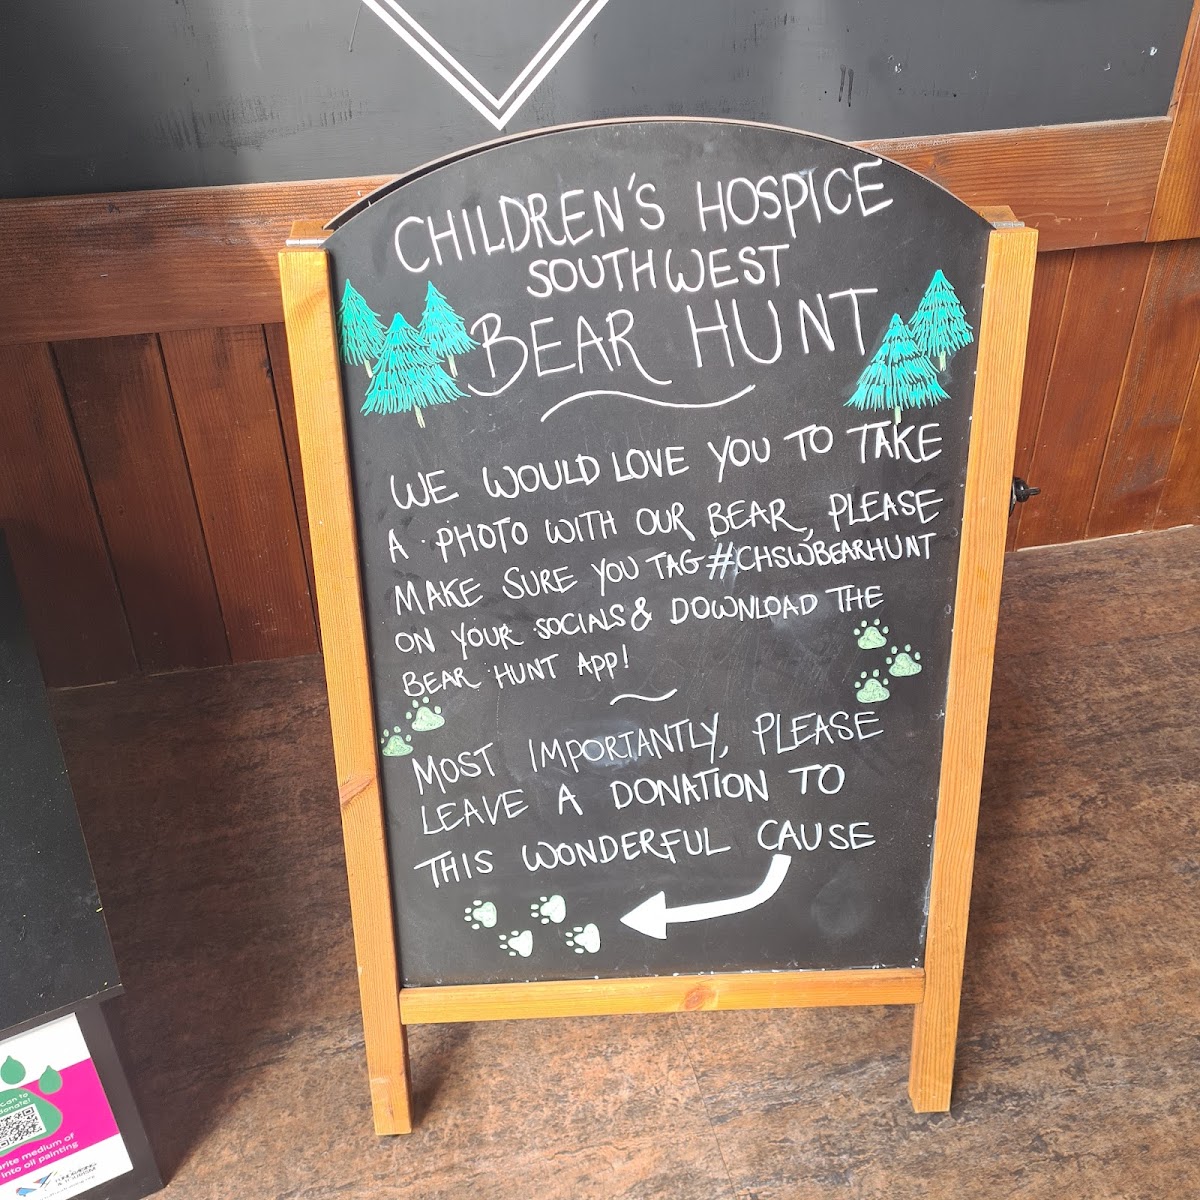 CHILDREN'S HOSPICE
SOUTHWEST
BEAR HUNT
WE WOULD LOVE YOU TO TAKE
A PHOTO WITH OUR BEAR, PLEASE
MAKE SURE YOU TAG #CHSWBEARHUNT
ON YOUR SOCIALS & DOWNLOAD THE
BEAR HUNT APP!
MOST IMPORTANTLY, PLEASE
LEAVE A DONATION TO
THIS WONDERFUL CAUSE
can to
donate!
medium of
into oil painting